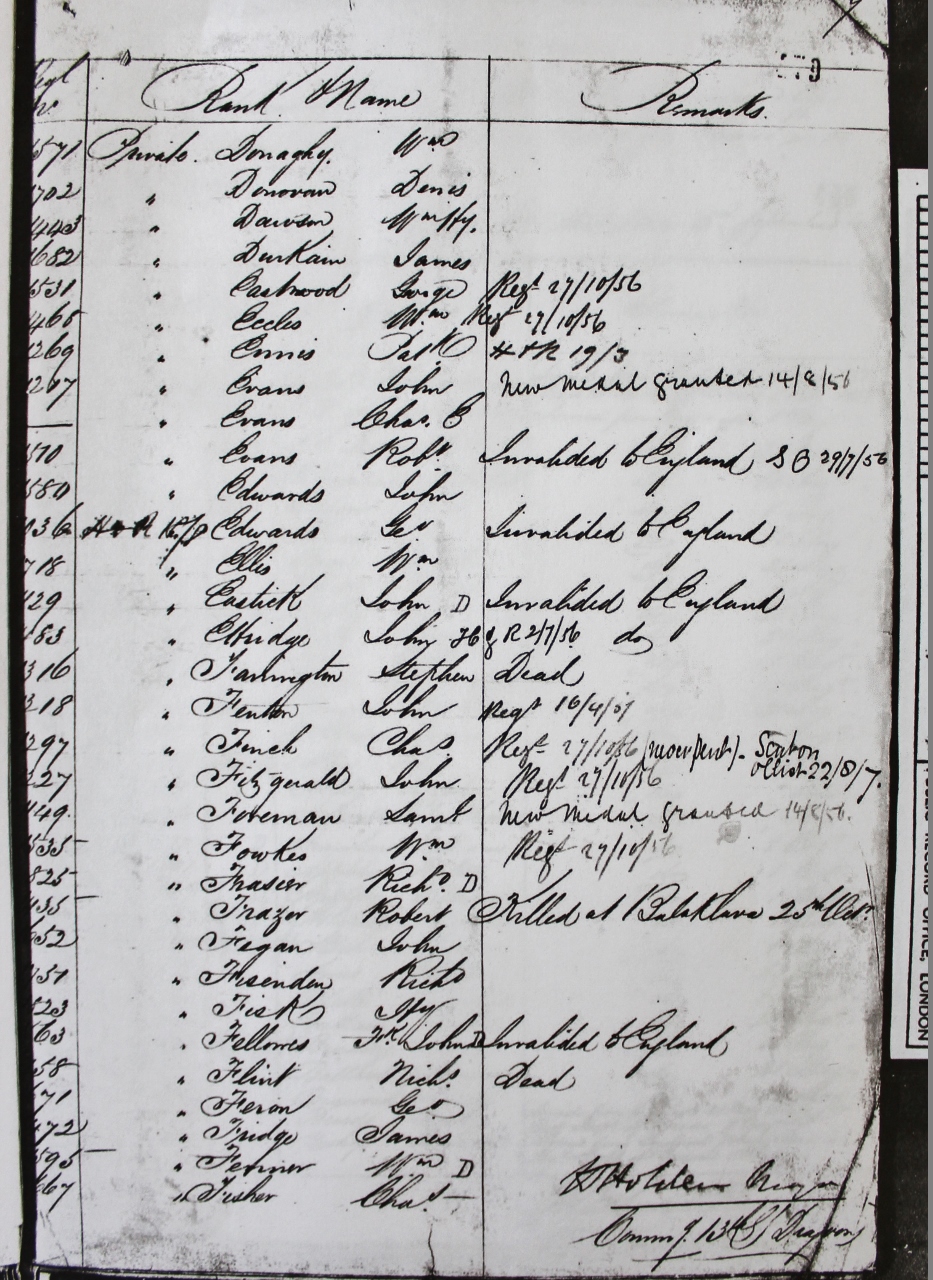 Regl No. Rank & Name Remarks.
1571 Private. Donaghy. Wm
1702 " Donovan Denis
1443 " Dawson Wm Hy.
1682 " Durkain James
1531 " Eastwood George Regt 27/10/56
1465 " Eccles Wm Regt 27/10/56
1269 " Ennis Patk H & R 19/3
1267 " Evans John New medal granted 14/8/56
— " Evans Chas. E
570 " Evans Robt Invalided to England S B 29/7/56
580 " Edwards John
1036 H & R Edwards Geo Invalided to England
718 " Ellis Wm
129 " Eastick John D Invalided to England
483 " Ethridge John H & R 2/7/56 do
316 " Farrington Stephen Dead
218 " Fenton John Regt 16/4/57
297 " Finch Chas. Regt 27/10/56
227 " Fitzgerald John Regt 27/10/56 22/8/7.
149. " Foreman Saml New medal granted 14/8/56.
535 " Fowkes Wm Regt 27/10/56
825 " Frasier Richd. D
435 " Frazer Robert Killed at Balaklava 25th Octr
652 " Fegan John
" Fisenden Richd
523 " Fisk Hy
63 " Fellowes Fk. John D Invalided to England
58 " Flint Nichs. Dead
71 " Feron Geo
472 " Fridge James
595 " Fenner Wm D
667 " Fisher Chas
H Holden Major
Comm g. 13th Lt Dragoons
PUBLIC RECORD OFFICE, LONDON